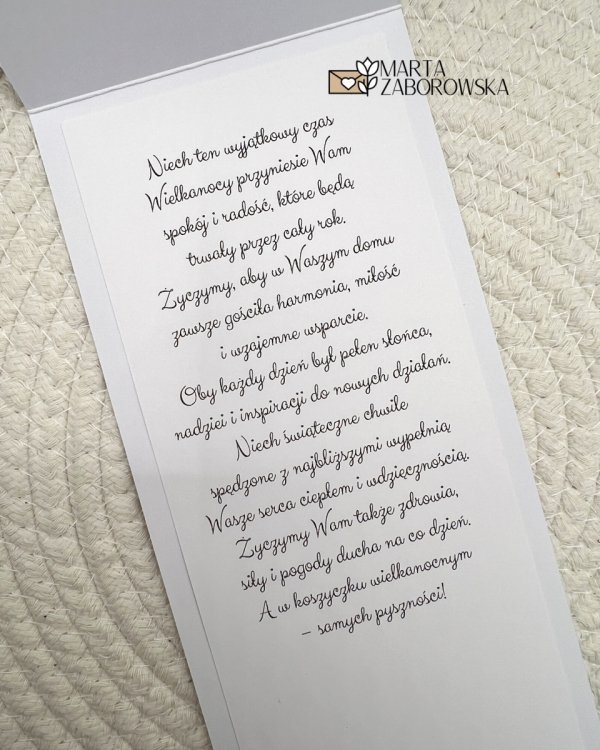 MARTA
ZABOROWSKA
Niech ten wyjątkowy czas
Wielkanocy przyniesie Wam
spokój i radość, które będą
trwały przez cały rok.
Życzymy, aby w Waszym domu
zawsze gościła harmonia, miłość
i wzajemne wsparcie.
Oby każdy dzień był pełen słońca,
nadziei i inspiracji do nowych działań.
Niech świąteczne chwile
spędzone z najbliższymi wypełnią
Wasze serca ciepłem i wdzięcznością.
Życzymy Wam także zdrowia,
siły i pogody ducha na co dzień.
A w koszyczku wielkanocnym
– samych pyszności!